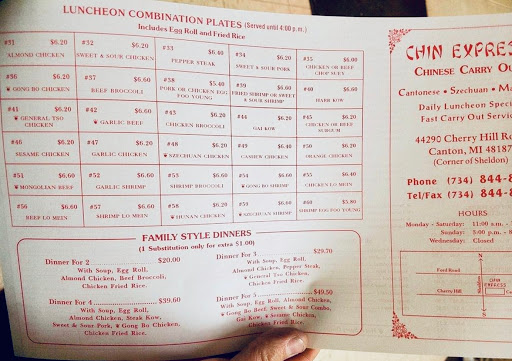 LUNCHEON COMBINATION PLATES (Served until 4:00 p.m.)
Includes Egg Roll and Fried Rice
#31 $6.20
ALMOND CHICKEN
#32 $6.20
SWEET & SOUR CHICKEN
#33 $6.40
PEPPER STEAK
#34 $6.20
SWEET & SOUR PORK
#35 $6.60
CHICKEN OR BEEF
CHOP SUEY
#36 $6.20
GONG BO CHICKEN
#37 $6.60
BEEF BROCCOLI
#38 $5.40
PORK OR CHICKEN EGG
FOO YOUNG
#39 $6.60
FRIED SHRIMP OR SWEET
& SOUR SHRIMP
$6.60
HARR KOW
#41 $6.20
GENERAL TSO
CHICKEN
#42 $6.60
GARLIC BEEF
#43 $6.20
CHICKEN BROCCOLI
#44 $6.20
GAI KOW
#45 $6.20
CHICKEN OR BEEF
SUBGUM
#46 $6.20
SESAME CHICKEN
#47 $6.20
GARLIC CHICKEN
#48 $6.20
SZECHUAN CHICKEN
#49 $6.20
CASHEW CHICKEN
#50 $6.20
ORANGE CHICKEN
#51 $6.60
MONGOLIAN BEEF
#52 $6.60
GARLIC SHRIMP
#53 $6.60
SHRIMP BROCCOLI
#54 $6.60
GONG BO SHRIMP
#55 $6.40
CHICKEN LO MEIN
#56 $6.60
BEEF LO MEIN
#57 $6.60
SHRIMP LO MEIN
#58 $6.20
HUNAN CHICKEN
#59 $6.60
SZECHUAN SHRIMP
#60 $5.80
SHRIMP EGG FOO YOUNG
FAMILY STYLE DINNERS
(1 Substitution only for extra $1.00)
Dinner For 2 $20.00
With Soup, Egg Roll,
Almond Chicken, Beef Broccoli,
Chicken Fried Rice.
Dinner For 3 $29.70
With Soup, Egg Roll,
Almond Chicken, Pepper Steak,
General Tso Chicken,
Chicken Fried Rice.
Dinner For 4 $39.60
With Soup, Egg Roll,
Almond Chicken, Steak Kow,
Sweet & Sour Pork, Gong Bo Chicken,
Chicken Fried Rice.
Dinner For 5 $49.50
With Soup, Egg Roll, Almond Chicken,
Gong Bo Beef, Sweet & Sour Combo,
Gai Kow, Sesame Chicken,
Chicken Fried Rice.
CHIN EXPRES
CHINESE CARRY OU
Cantonese • Szechuan • Ma
Daily Luncheon Speci
Fast Carry Out Servic
44290 Cherry Hill Ro
Canton, MI 48187
(Corner of Sheldon)
Phone (734) 844-8
Tel/Fax (734) 844-8
HOURS
Monday - Saturday: 11:00 a.m. -
Sunday: 3:00 p.m. - 8
Wednesday: Closed
Ford Road
Cherry Hill
CHIN
EXPRESS
Sheldon